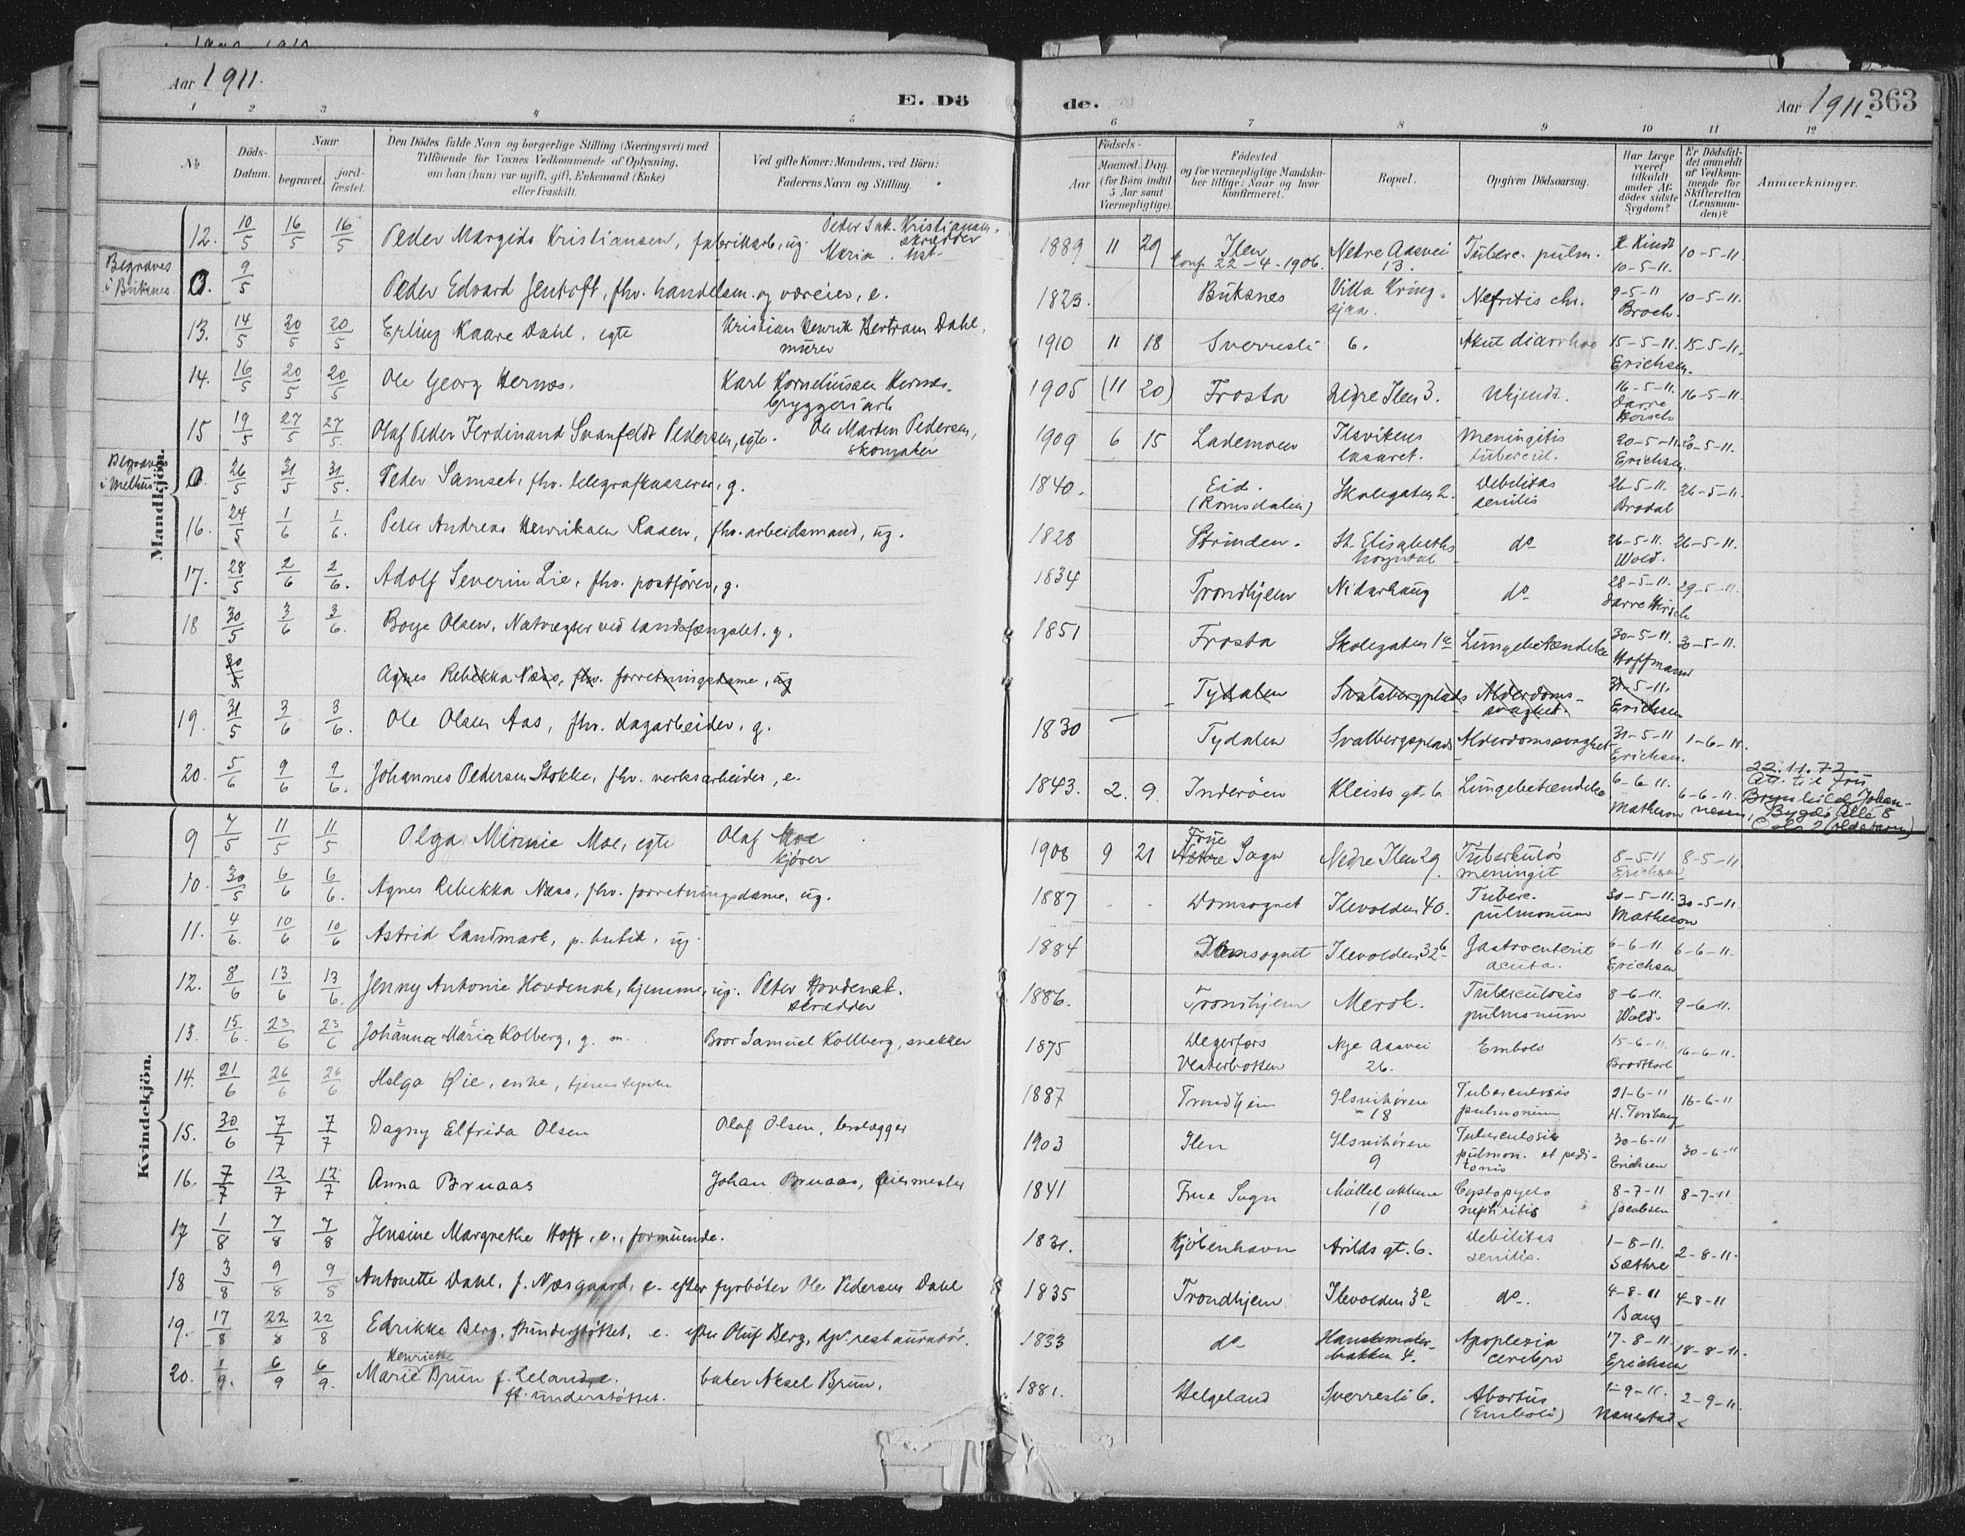 Aar 1911.
E. Dö
de.
Aar 1911.
363
1 2 3 4 5 6 7 8 9 10 11 12
No
Döds-Datum.
Naar
begravet.
jord-fæstet.
Den Dödes fulde Navn og borgerlige Stilling (Næringsvei) med
Tilföiende for Voxnes Vedkommende af Oplysning,
om han (hun) var ugift, gift, Enkemand (Enke)
eller fraskilt.
Ved gifte Koner: Mandens, ved Börn:
Faderens Navn og Stilling.
Födsels-
Aar
Maaned. Dag.
(for Börn indtil
5 Aar samt
Værnepligtige).
Födested
og for værnepligtige Mandskaber tillige: Naar og hvor
konfirmeret.
Bopæl.
Opgiven Dödsaarsag.
Har Læge
været
tilkaldt
under Afdödes sidste
Sygdom?
Er Dödsfaldet anmeldt
af Vedkommende for
Skifteretten
(Lensmanden)?
Anmærkninger.
Mandkjön.
12. 10/5 16/5 16/5 Peder Margido Kristiansen, fabrikkarb., ug. Peder Kristiansen, skrædder Maria 1889 11 29 Ilen Conf. 22-4-1906. Nedre Aasvei 13. Tuberc. pulm. Kindt 10-5-11. 10-5-11.
Begraves i Buksnes 0. 9/5 Peder Edvard Jentoft, fhv. handelsm. og væreier, e. 1823. Buksnes Villa Kringsjaa. Nefritis chr. 9-5-11 Broch. 10-5-11.
13. 14/5 20/5 20/5 Erling Kaare Dahl, egte Kristian Henrik Bertram Dahl, murer 1910 11 18 Sverresli 6. Akut diarrhoe 15-5-11. Erichsen. 15-5-11.
14. 16/5 20/5 20/5 Ole Georg Hernes. Karl Korneliussen Hernes. bryggeriarb 1905 (11 20) Frosta Nedre Ilen 3. Ukjendt. 16-5-11. 16-5-11.
15 19/5 27/5 27/5. Olaf Peder Ferdinand Svanfeldt Pedersen, egte. Ole Marten Pedersen, skomaker 1909 6 15 Lademoen Ilsvikens lasaret. Meningitis tubercul. 20-5-11. Erichsen 20-5-11.
Begraves i Melhus 0. 26/5 31/5 31/5. Peder Samset, fhv. telegrafkasserer, g. 1840. Eid. (Romsdalen) Skolegaten 2. Debilitas senilis 26-5-11. Brodal 26-5-11.
16. 24/5 1/6 1/6. Peter Andreas Henriksen Raaen, fhv. arbeidsmand, ug. 1828 Strinden. St. Elisabeths hospital do 26-5-11. Wold. 26-5-11.
17. 28/5 2/6 2/6. Adolf Severin Lie, fhv. postfører, g. 1834 Trondhjem Nidarhaug do 28-5-11. 29-5-11.
18 30/5 3/6 3/6. Boye Olsen, Natvægter ved landsfængslet. g. 1851 Frosta Skolegaten 1a Lungebetændelse 30-5-11. Hoffmann 30-5-11.
30/5 Agnes Rebekka Næss, fhv. forretningsdame, ug Tydalen Svalsbergplads Alderdomssvaghet. 31-5-11. Erichsen
19. 31/5 3/6 3/6. Ole Olsen Aas, fhv. dagarbeider, g. 1830 Tydalen Svalbergsplads Alderdomssvaghet 31-5-11 Erichsen. 1-6-11.
20. 5/6 9/6 9/6. Johannes Pedersen Stokke, fhv. verksarbeider, e. 1843. 2. 9. Inderøen Kleists gt. 6 Lungebetændelse 6-6-11. Matheson 6-6-11. 22.11.72 Att. til Fru Brynhild Johannesen, Bygdø Allé 8 Oslo 2 (oldebarn)
Kvindekjön.
9 7/5 11/5 11/5 Olga Minnie Moe, egte Olaf Moe kjører 1908 9 21 Frue Sogn Nedre Ilen 29. Tuberkuløs meningit 8-5-11 Erichsen 8-5-11
10. 30/5 6/6 6/6. Agnes Rebekka Næss, fhv. forretningsdame, ug. 1887 - - Domsognet Ilevolden 40. Tuberc. pulmonum 30-5-11. Matheson 30-5-11.
11. 4/6. 10/6 10/6 Astrid Landmark, p. butik, ug. 1884 Domsognet Ilevolden 32b Gastroenterit acuta. 6-6-11. Erichsen 6-6-11.
12. 8/6 13/6 13/6. Jenny Antonie Hovdenak, hjemme, ug. Peter Hovdenak. skrædder 1886. Trondhjem Merok. Tuberculosis pulmonum 8-6-11. Wold. 9-6-11.
13. 15/6. 23/6 23/6 Johanna Maria Kolberg, g. m. Boor Samuel Kollberg, snekker 1875 Degerfors Vesterbotten Nye Aasvei 26. Emboli 15-6-11. 16-6-11.
14. 21/6 26/6 26/6 Helga Øie, enke, 1887 Trondhjem Ilsvikøren 18 Tuberculosis pulmonum 21-6-11 16-6-11
15. 30/6 7/7 7/7 Dagny Elfrida Olsen Olaf Olsen, brolægger 1903 Ilen Ilsvikøren 9 Tuberculosis pulmon. et peritonis 30-6-11 Erichsen 30-6-11
16. 7/7 12/7 12/7 Anna Bruaas Johan Bruaas, feiermester 1841 Frue Sogn Møllebakken 10 Cystopyelonephritis 8-7-11 Jacobsen 8-7-11
17 1/8 7/8 7/8 Jensine Margrethe Hoff, e., formuende. 1831. Kjøbenhavn Arilds gt. 6. Debilitas senilis. 1-8-11. Sæthre 2-8-11.
18 3/8 9/8 9/8 Antonette Dahl, f. Næsgaard, e. efter fyrbøter Ole Pedersen Dahl 1835 Trondhjem Ilevolden 3e do. 4-8-11 Bang 4-8-11
19. 17/8 22/8 22/8 Edrikke Berg, f. understøttet, e. efter Oluf Berg, restauratør. 1833 do Hanskemakerbakken 4. Apoplexia cerebri 17-8-11. Erichsen 18-8-11.
20. 1/9. 6/9 6/9. Marie Henriette Brun f. Leland, e. ff. understøttet. baker Aksel Brun. 1881. Helgeland Sverresli 6. Abortus (Emboli) 1-9-11. 2-9-11.